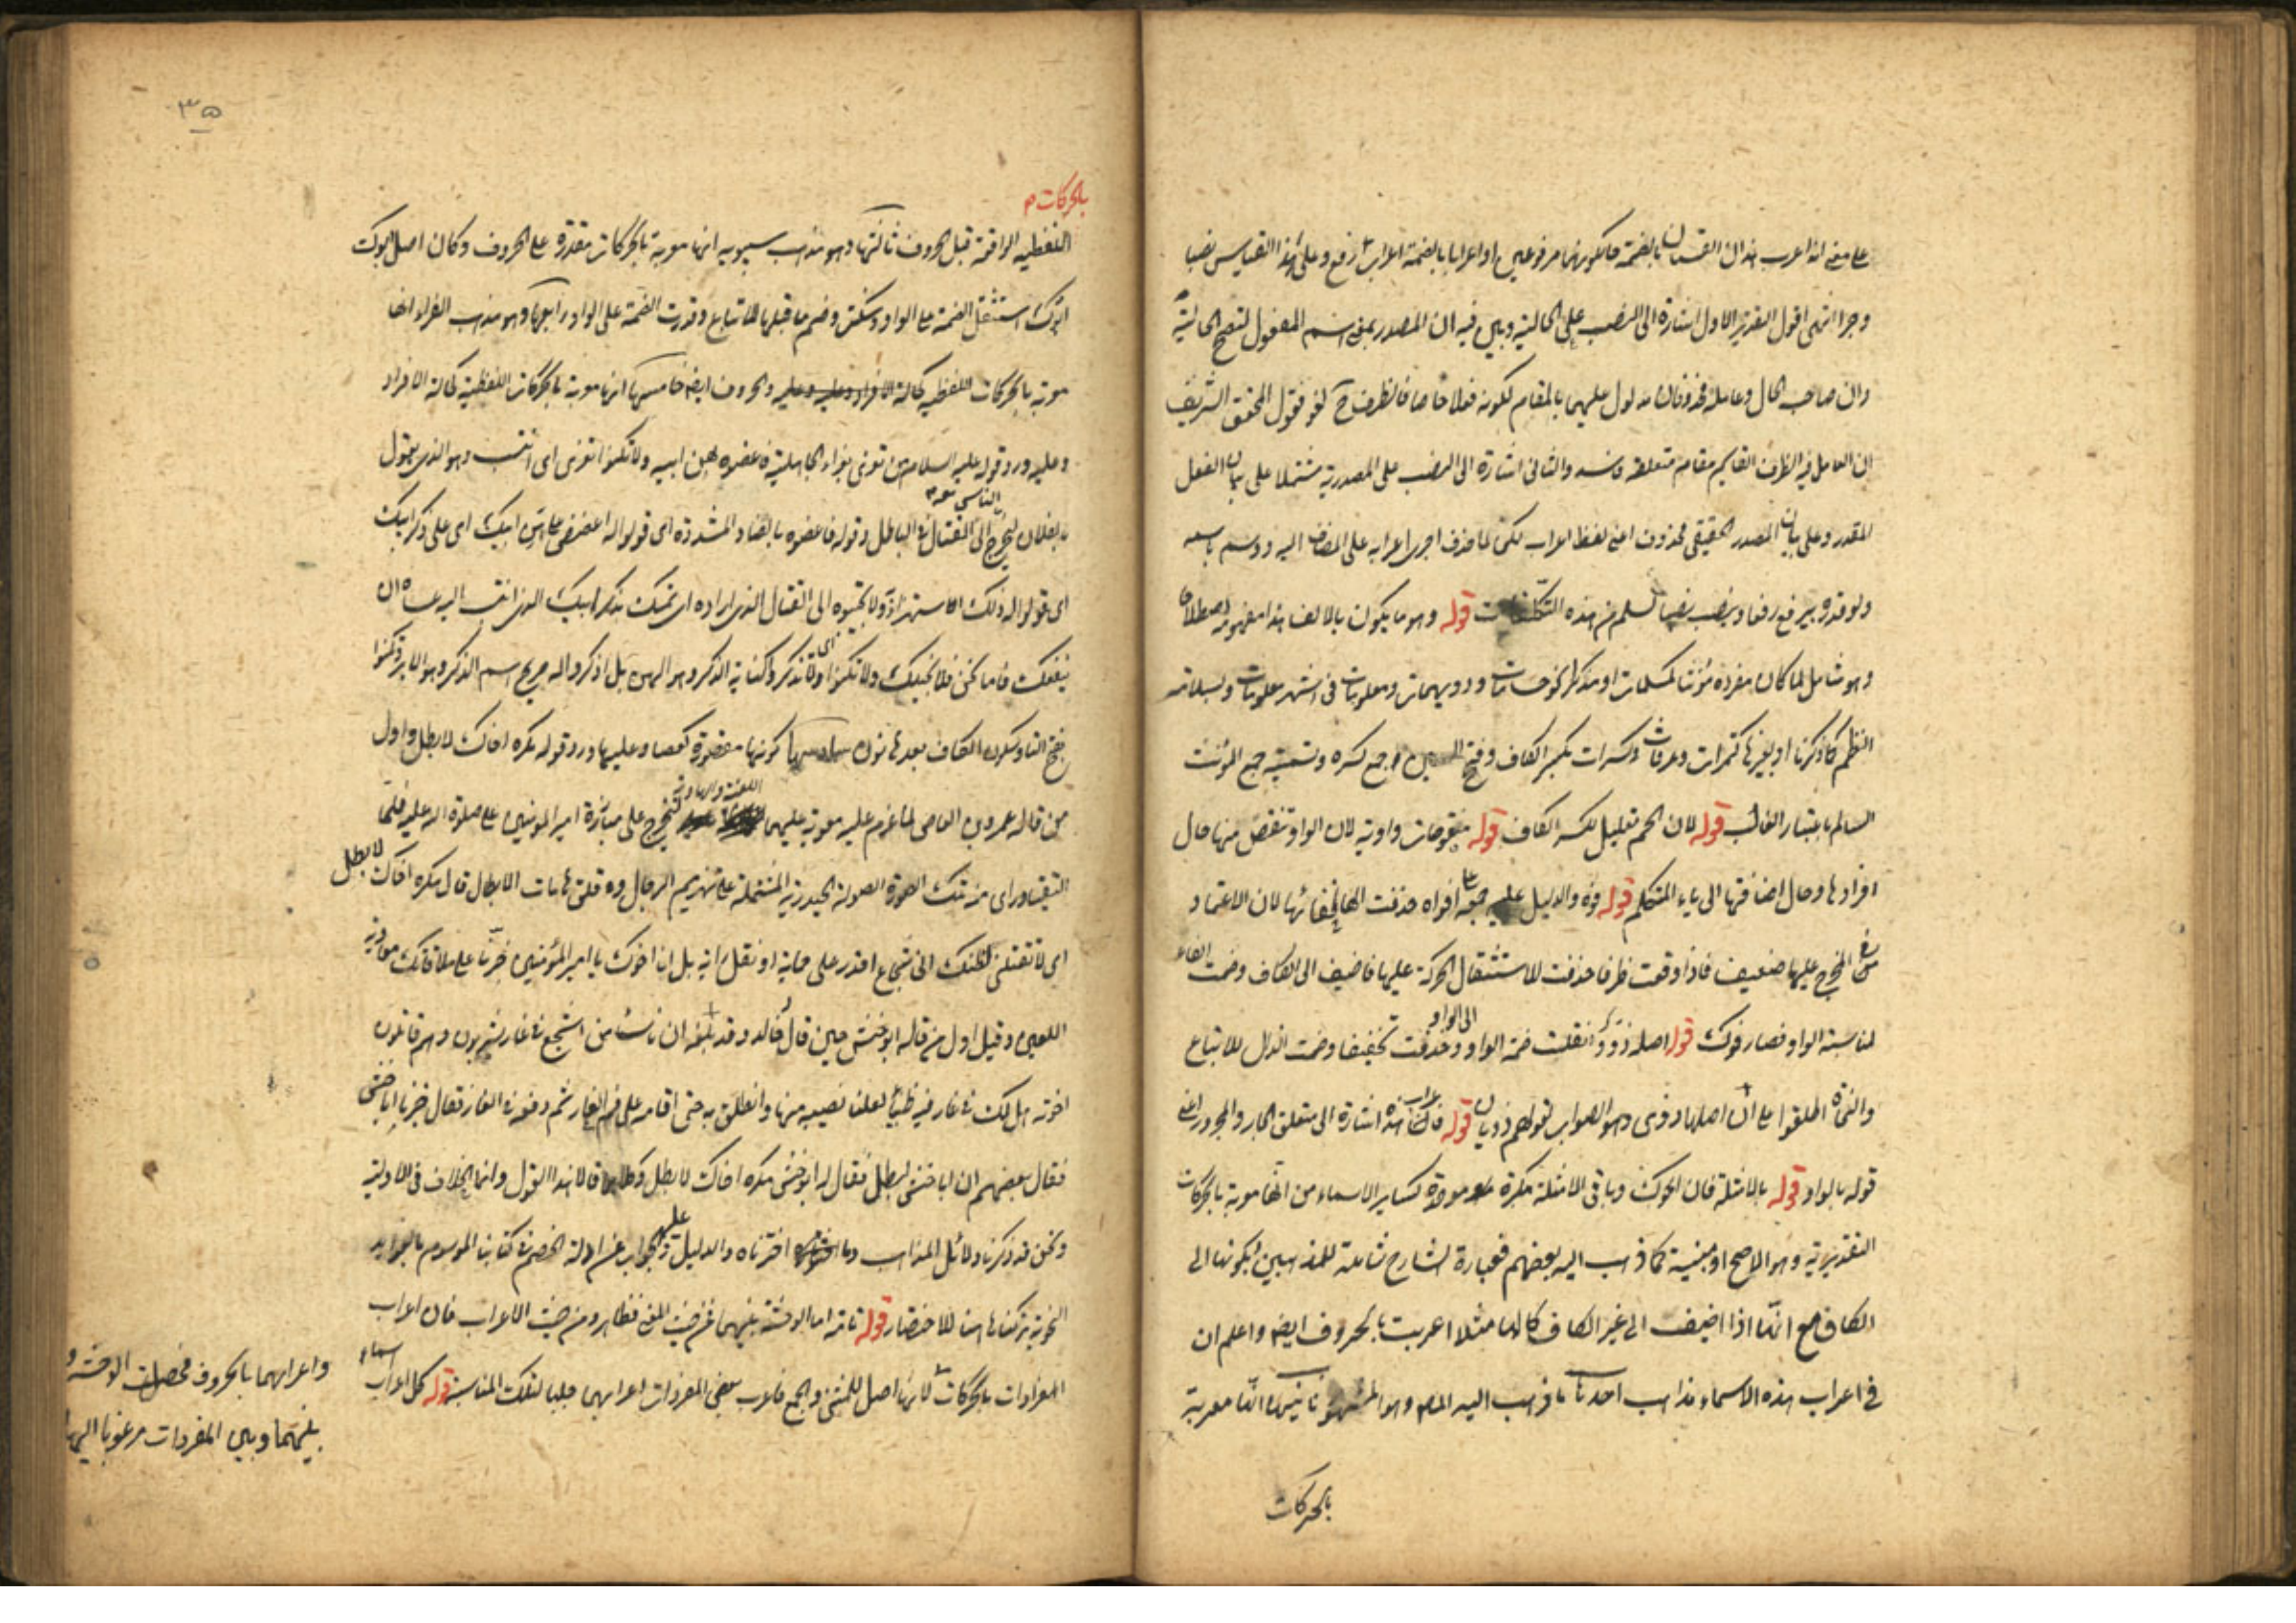 على معنى انه اعرب هذان القسمان بالضمة حال كونهما مرفوعين او اعرابا بالضمة اعراب رفع وعلى هذا القياس نصبا
وجرا انتهى اقول التقدير الاول اشارة الى النصب على الحالية وبين فيه ان المصدر بمعنى اسم المفعول لتصح الحالية
وان صاحب الحال وعامله محذوفان مدلول عليهما بالمقام لكونه فعلا خاصا فالظرف ح لغو فقول المحقق الشريف
ان العامل فيه الظرف القايم مقام متعلقه فاسد والثانى اشارة الى النصب على المصدرية مشتملا على بيان الفعل
المقدر وعلى بيان المصدر الحقيقى محذوف اعنى لفظ اعراب لكن لما حذف اجرى اعرابه على المضاف اليه ووسم باسمه
ولو قدره بيرفع رفعا وينصب نصبا لسلم من هذه التكلفات قوله وهو ما يكون بالالف هذا مفهومه اصطلاحا
وهو شامل لما كان مفرده مؤنثا كمسلمات او مذكرا ودريهمات ومعلومات فى اشهر معلومات وبسلامة
النظم كما ذكرنا او بغيرها كتمرات وعرفات وكسرات بكسر الكاف وفتح السين جمع كسرة وتسميته جمع المؤنث
السالم باعتبار الغالب قوله لان الحم تعليل لكسر الكاف قوله منقوصات واوية لان الواو تنقص منها حال
افرادها وحال اضافتها الى ياء المتكلم قوله فوه والدليل عليه جمعه على افواه حذفت الهاء لخفائها لان الاعتماد
فى المخرج عليها ضعيف فاذا وقعت ظرفا حذفت لاستثقال الحركة عليها فاضيف الى الكاف وضمت الفاء
لمناسبة الواو فصار فوك قوله اصله ذوو انقلت ضمة الواو الى الواو وحذفت تخفيفا وضمت الذال للاتباع
والنحاة اطلقوا على ان اصلها ذوى وهو الصواب لقولهم ذويان قوله فاعراب هذه اشارة الى متعلق الجار والمجرور اعنى
قوله بالواو قوله بالامثلة فان اخوك وباقى الامثلة مكبرة موحدة كساير الاسماء من انها معربة بالحركات
التقديرية وهو الاصح او مبنية كما ذهب اليه بعضهم فعبارة الشارح شاملة للمذهبين لكونها الى
الكاف مع انها اذا اضيف الى غير الكاف كالهاء مثلا اعربت بالحروف ايضا واعلم ان
فى اعراب هذه الاسماء مذاهب احدها ما ذهب اليه المص وهو المشهور ثانيها انها معربة
بالحركات
٣٥
بالحركات م
اللفظية الواقعة قبل الحروف ثالثها وهو مذهب سيبويه انها معربة بالحركات مقدرة على الحروف وكان اصل ابوك
ابوك استثقل الضمة على الواو وسكنت وضم ما قبلها للاتباع وقدرت الضمة على الواو رابعها وهو مذهب الفراء انها
معربة بالحركات اللفظية كحالة الافراد والحروف ايضا خامسها انها معربة بالحركات اللفظية كحالة الافراد
وعليه ورد قوله عليه السلام من تعزى بعزاء الجاهلية فاعضوه بهن ابيه ولا تكنوا تعزى اى انتسب وهو الذى يقول
يا لفلان ليخرج الناس معه الى القتال فى الباطل وقوله فاعضوه بالضاد المشددة اى قولوا له اعضض على ابيك اى على ذكر ابيك
اى قولوا له ذلك استهزاء ولا تجيبوه الى القتال الذى اراده اى تمسك بذكر ابيك الذى انتسب اليه عساه ان
ينفعك فاما نحن فلا نجيبك ولا تكنوا اى ولا تذكروا كناية الذكر وهو الهن بل اذكروا له صريح اسم الذكر وهو الاير وتكنوا
بفتح التاء وسكون الكاف بعدها نون سادسها كونها مقصورة كعصا وعليها ورد قوله مكره اخاك لا بطل واول
من قاله عمرو بن العاص لما عزم عليه معوية عليهما اللعنة والهاوية ليخرج على مبارزة امير المؤمنين على صلوة الله عليه فلما
التقيا وراى من تلك الصورة الصولة الحيدرية المشتملة على تهزيم الرجال وفلق هامات الابطال قال مكره اخاك لا بطل
اى لا تقتلنى لظنك انى شجاع اقدر على محاربة بل انا اخوك يا امير المؤمنين على ملاقاتك معاوية
اللعين وقيل اول من قاله ابو خنش حين قال خاله وقد بلغه ان ناسا من اشجع فى غار يشربون وهم قاتلون
اخوته هل لك فى غار فيه ظباء لعلنا نصيب منها وانطلق به حتى اقامه على فم الغار ثم دفعه فى الغار فقال ضربا ابا خنش
فقال بعضهم ان ابا خنش لبطل فقال له ابو خنش مكره اخاك لا بطل وكلاهما قالا هذا القول وانما الخلاف فى الاولية
ونحن قد ذكرنا دلائل المذاهب وما اخترناه والدليل عليه والجواب عن ادلة الخصم فى كتابنا الموسوم بالفوايد
النحوية تركناها هنا للاختصار قوله تامة اما الوحشة بينهما فمن حيث المعنى فظاهر ومن حيث الاعراب فان اعراب
المفردات بالحركات لانها اصل للمثنى والجمع فاعرب بعض المفردات اعرابهما جلبا لتلك المناسبة قوله كل اعراب
واعرابهما بالحروف فحصلت الوحشة
بينهما وبين المفردات